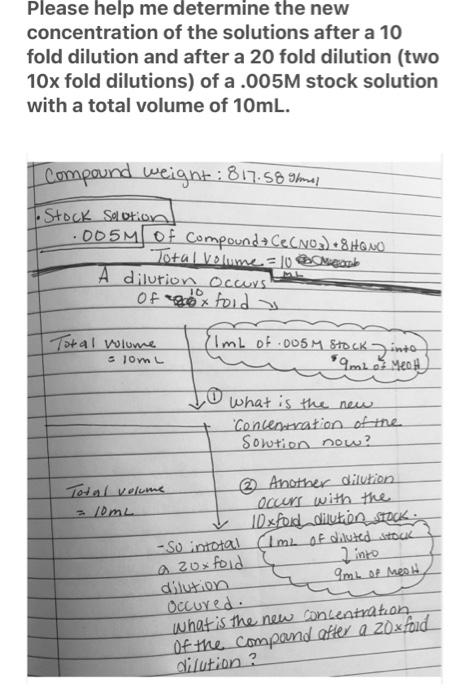 Please help me determine the new
concentration of the solutions after a 10
fold dilution and after a 20 fold dilution (two
10x fold dilutions) of a .005M stock solution
with a total volume of 10mL.
Compound weight : 817.58 g/mol
• Stock Solution
.005M of Compound → Ce(NO3) + 8HQNO
Total Volume = 10
mL
A dilution occurs
of 10 x fold
Total Volume
= 10mL
1mL of .005M Stock into
9mL of MeOH
① what is the new
concentration of the
Solution now?
Total Volume
= 10mL
② Another dilution
occurs with the
10xfold dilution stock.
- So in total
a 20xfold
dilution
occured.
1mL of diluted stock
into
9mL of MeOH
what is the new concentration
of the compound after a 20xfold
dilution?